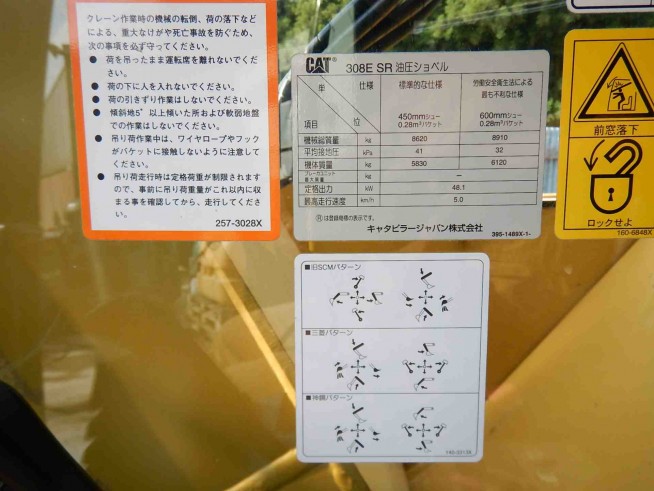 クレーン作業時の機械の転倒、荷の落下など
による、重大なけがや死亡事故を防ぐため、
次の事項を必ず守ってください。
● 荷を吊ったまま運転席を離れないでくだ
さい。
● 荷の下に人を入れないでください。
● 荷の引きずり作業はしないでください。
● 傾斜地5°以上傾いた所および軟弱地盤
での作業はしないでください。
● 吊り作業中は、ワイヤロープやフック
がバケットに接触しないように注意して
ください。
● 吊り荷走行時は定格荷重が制限されます
ので、事前に吊り荷重量がこれ以内に収
まる事を確認してから、走行してくださ
い。
257-3028X
CAT 308E SR 油圧ショベル
単 位 項目
仕様 標準的な仕様 労働安全衛生法による
最も不利な仕様
450mmシュー 600mmシュー
0.28m³バケット 0.28m³バケット
機械総質量 kg 8620 8910
平均接地圧 kPa 41 32
機体質量 kg 5830 6120
ブレーカユニット
最大質量 kg –
定格出力 kW 48.1
最高走行速度 km/h 5.0
Ⓡは登録商標の表示です。
キャタピラージャパン株式会社
395-1489X-1-
前窓落下
ロックせよ
160-6848X
■旧SCMパターン
■三菱パターン
■神鋼パターン